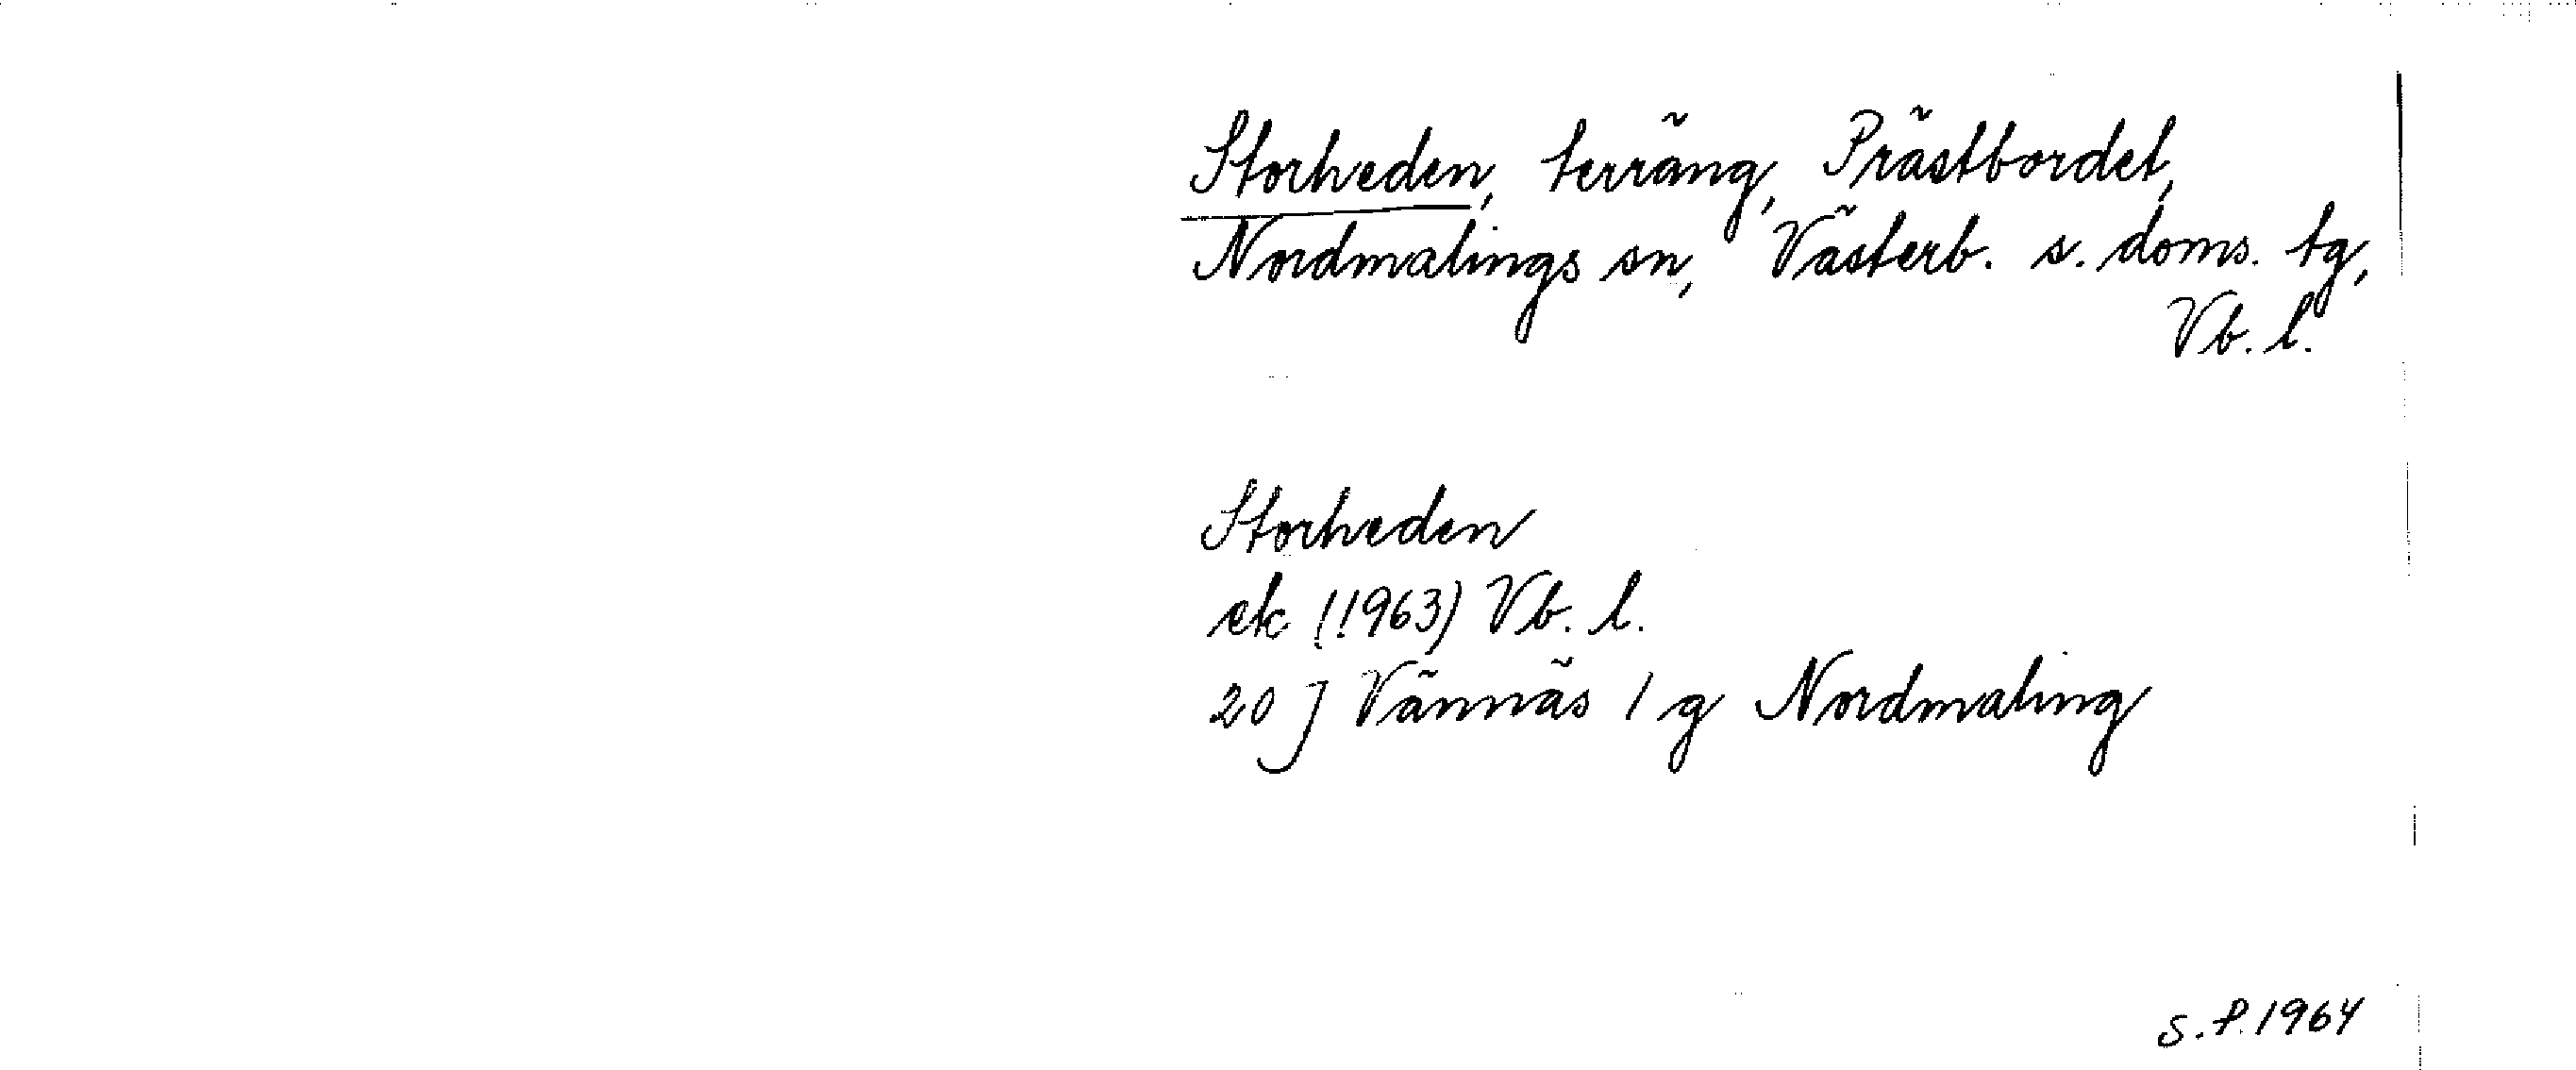 Storheden, terräng, Prästbordet,
Nordmalings sn, Västerb. s. doms. tg,
Vb. l.
Storheden
ek (!1963) Vb. l.
20 J Vännäs / g Nordmaling
S.P. 1964